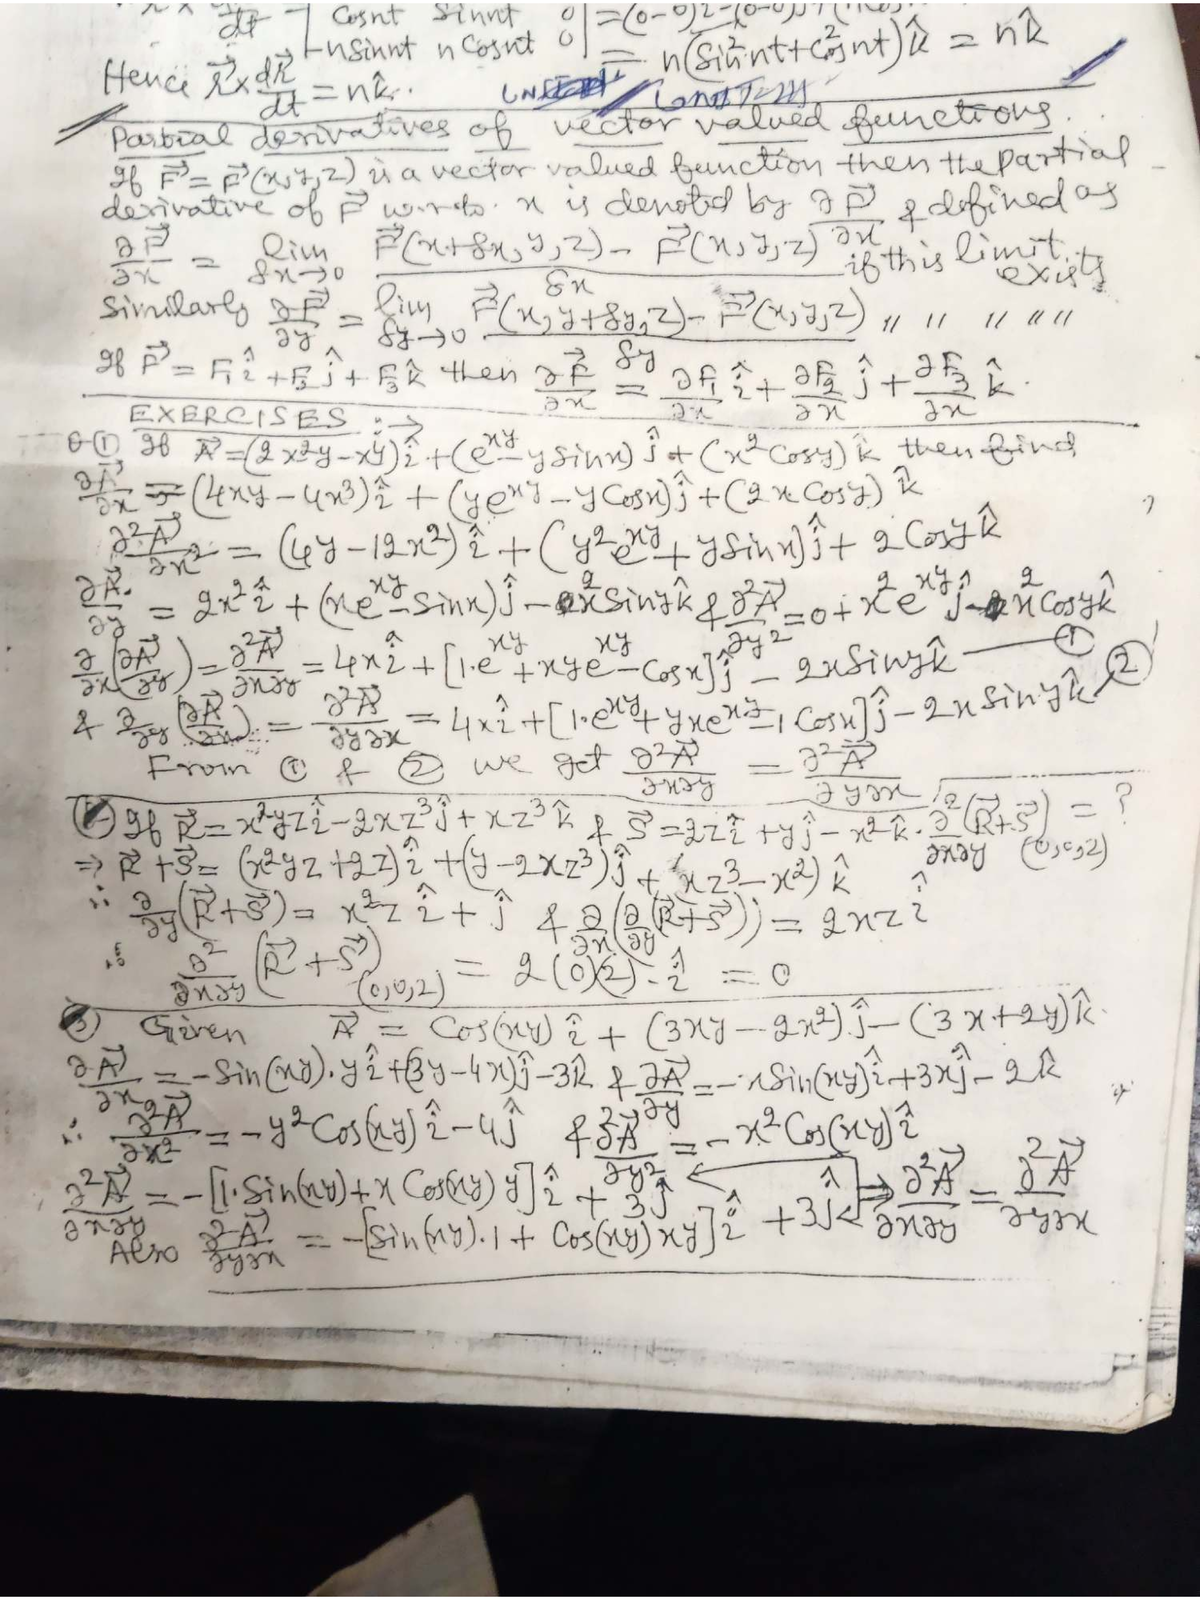 dt | Cosnt Sinnt 0 | = (0-0)
-nSinnt nCosnt 0 | = n(Sin²nt+Cos²nt)k̂ = nk̂
Hence r⃗ × dr⃗/dt = nk̂.
Partial derivatives of vector valued functions.
If F⃗ = F⃗(x,y,z) is a vector valued function then the partial
derivative of F⃗ w.r.to. x is denoted by ∂F⃗/∂x & defined as
∂F⃗/∂x = lim δx→0 F⃗(x+δx, y, z) - F⃗(x, y, z) / δx if this limit exists
Similarly ∂F⃗/∂y = lim δy→0 F⃗(x, y+δy, z) - F⃗(x, y, z) / δy " " " " "
If F⃗ = F₁î + F₂ĵ + F₃k̂ then ∂F⃗/∂x = ∂F₁/∂x î + ∂F₂/∂x ĵ + ∂F₃/∂x k̂.
EXERCISES :→
Q-① If A⃗ = (2x²y - x⁴)î + (e^xy - y Sinx)ĵ + (x² Cosy)k̂ then find
∂A⃗/∂x = (4xy - 4x³)î + (ye^xy - y Cosx)ĵ + (2x Cosy)k̂
∂²A⃗/∂x² = (4y - 12x²)î + (y²e^xy + ySinx)ĵ + 2Cosyk̂
∂A⃗/∂y = 2x²î + (xe^xy - Sinx)ĵ - x²Sinyk̂ & ∂²A⃗/∂y² = 0 + x²e^xy ĵ - x²Cosyk̂
∂/∂x(∂A⃗/∂y) = ∂²A⃗/∂x∂y = 4xî + [1.e^xy + xye^xy - Cosx]ĵ - 2xSinyk̂ — ①
& ∂/∂y(∂A⃗/∂x) = ∂²A⃗/∂y∂x = 4xî + [1.e^xy + yxe^xy - 1.Cosx]ĵ - 2xSinyk̂ — ②
From ① & ② we get ∂²A⃗/∂x∂y = ∂²A⃗/∂y∂x
If R⃗ = x²yzî - 2xz³ĵ + xz³k̂ & S⃗ = 2zî + yĵ - x²k̂. ∂²/∂x∂y (R⃗+S⃗)(0,0,2) = ?
⇒ R⃗+S⃗ = (x²yz+2z)î + (y-2xz³)ĵ + (xz³-x²)k̂
∴ ∂/∂y(R⃗+S⃗) = x²z î + ĵ & ∂/∂x(∂/∂y(R⃗+S⃗)) = 2xz î
∴ ∂²/∂x∂y (R⃗+S⃗)(0,0,2) = 2(0)(2).î = 0
③ Given A⃗ = Cos(xy)î + (3xy - 2x²)ĵ - (3x+2y)k̂.
∂A⃗/∂x = -Sin(xy).yî + (3y-4x)ĵ - 3k̂ & ∂A⃗/∂y = -xSin(xy)î + 3xĵ - 2k̂
∴ ∂²A⃗/∂x² = -y²Cos(xy)î - 4ĵ & ∂²A⃗/∂y² = -x²Cos(xy)î
∂²A⃗/∂x∂y = -[1.Sin(xy) + x Cos(xy) y]î + 3ĵ ⇒ ∂²A⃗/∂x∂y = ∂²A⃗/∂y∂x
Also ∂²A⃗/∂y∂x = -[Sin(xy).1 + Cos(xy) xy]î + 3ĵ